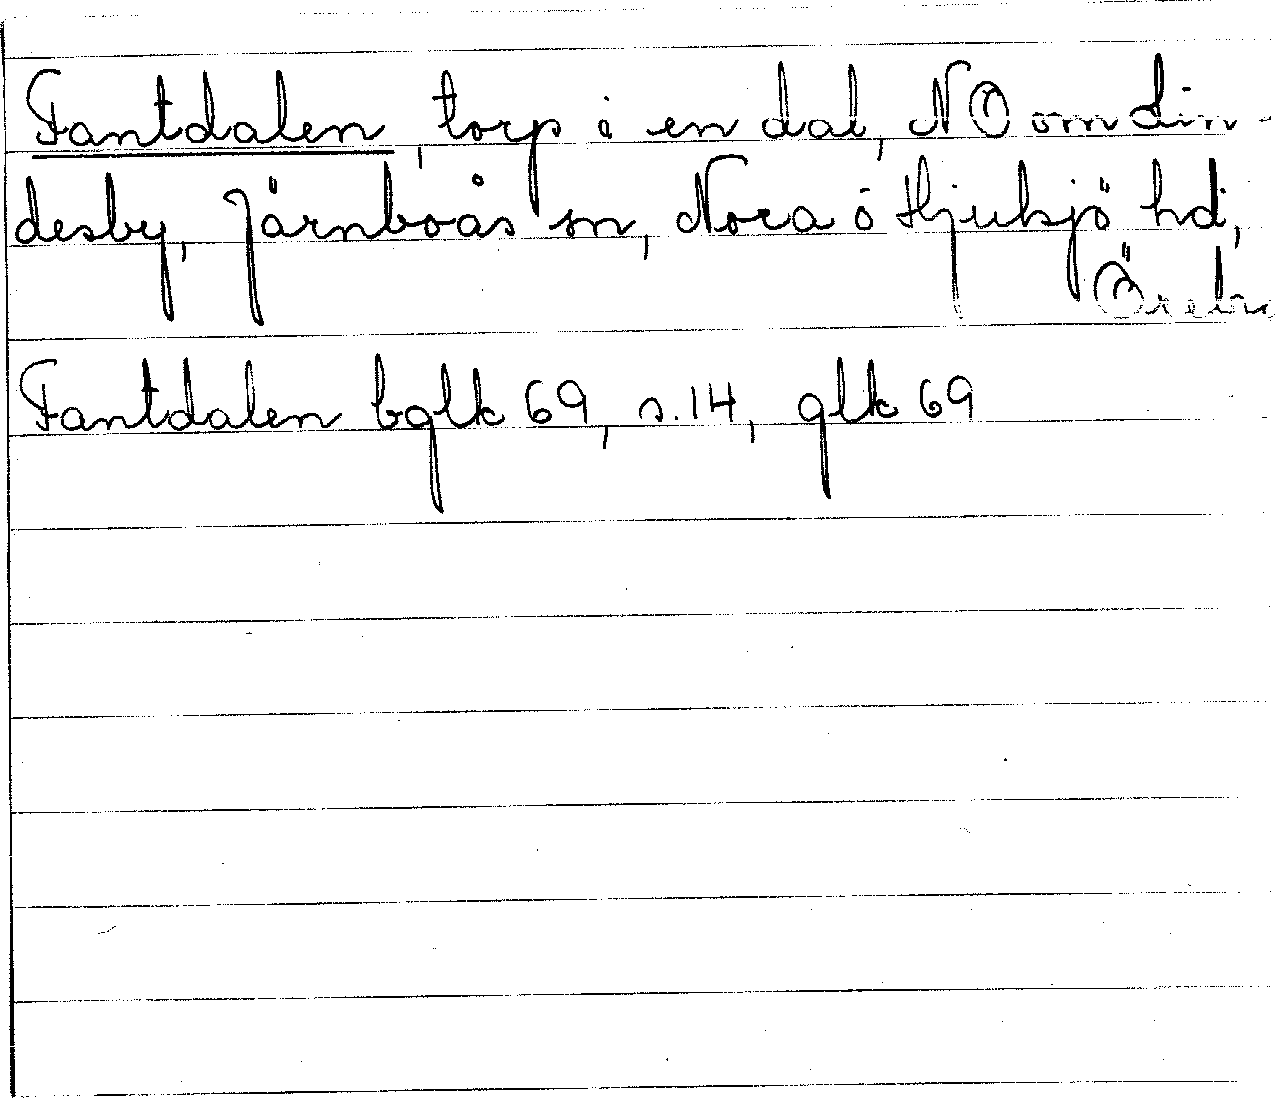 Fantdalen, torp i en dal, NO om Lin-
desby, Järnboås sn, Nora ö Hjulsjö hd,
Örebro
Fantdalen bglk 69, s.14, glk 69